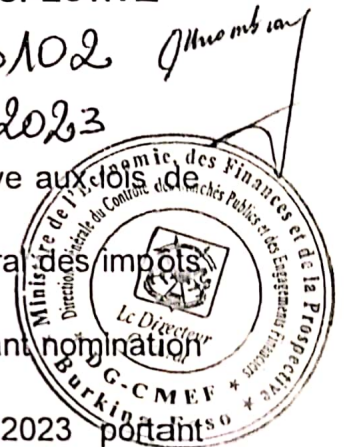 102
2023
ve aux lois de
ral des impôts,
ant nomination
2023 portant
Ministère de l'Economie, des Finances et de la Prospective
Direction Générale du Contrôle des Marchés Publics et des Engagements Financiers
Le Directeur
DG-CMEF
Burkina Faso